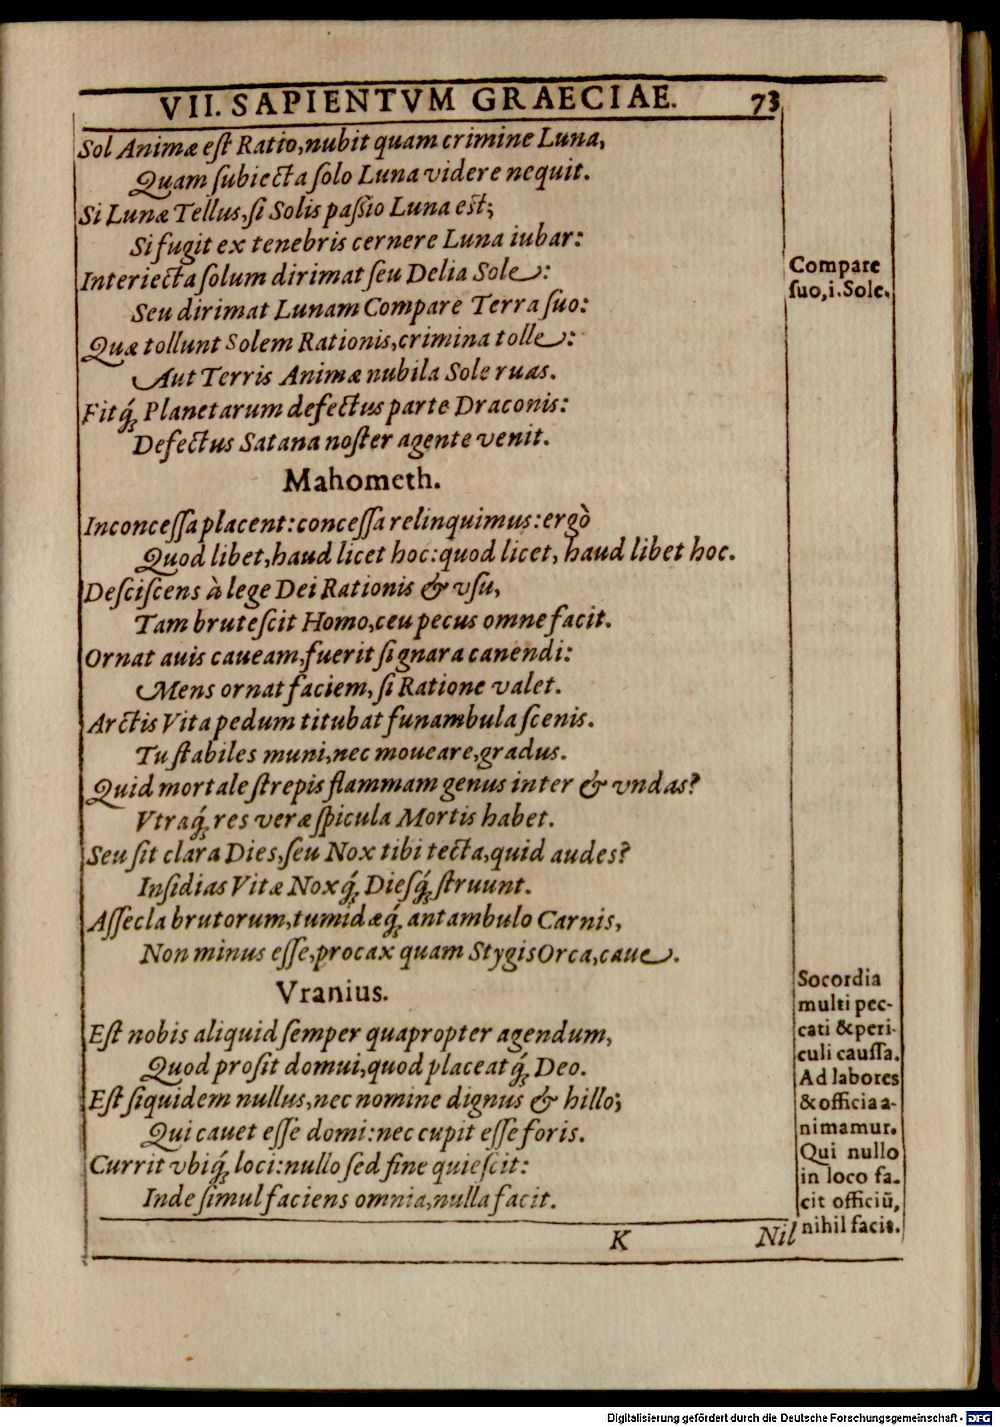 VII. SAPIENTVM GRAECIAE. 73
Sol Animæ eſt Ratio, nubit quam crimine Luna,
Quam ſubiecta ſolo Luna videre nequit.
Si Lunæ Tellus, ſi Solis paſſio Luna est;
Si fugit ex tenebris cernere Luna iubar:
Interiecta ſolum dirimat ſeu Delia Sole:
Seu dirimat Lunam Compare Terra ſuo:
Quæ tollunt Solem Rationis, crimina tolle:
Aut Terris Animæ nubila Sole ruas.
Fitq́; Planetarum defectus parte Draconis:
Defectus Satana noſter agente venit.
Compare
ſuo, i. Sole.
Mahometh.
Inconceſſa placent: conceſſa relinquimus: ergò
Quod libet, haud licet hoc: quod licet, haud libet hoc.
Deſciſcens à lege Dei Rationis & vſu,
Tam bruteſcit Homo, ceu pecus omne facit.
Ornat auis caueam, fuerit ſi gnara canendi:
Mens ornat faciem, ſi Ratione valet.
Arctis Vita pedum titubat funambula ſcenis.
Tu ſtabiles muni, nec moueare, gradus.
Quid mortale ſtrepis flammam genus inter & vndas?
Vtraq́; res veræ ſpicula Mortis habet.
Seu ſit clara Dies, ſeu Nox tibi tecta, quid audes?
Inſidias Vitæ Noxq́; Dieſq́; ſtruunt.
Aſſecla brutorum, tumidæq́; antambulo Carnis,
Non minus eſſe, procax quam Stygis Orca, caue.
Vranius.
Eſt nobis aliquid ſemper quapropter agendum,
Quod proſit domui, quod placeatq́; Deo.
Eſt ſiquidem nullus, nec nomine dignus & hillo;
Qui cauet eſſe domi: nec cupit eſſe foris.
Currit vbiq́; loci: nullo ſed fine quieſcit:
Inde ſimul faciens omnia, nulla facit.
Socordia
multi pec-
cati & peri-
culi cauſſa.
Ad labores
& officia a-
nimamur.
Qui nullo
in loco fa-
cit officiũ,
nihil facit.
K Nil
Digitalisierung gefördert durch die Deutsche Forschungsgemeinschaft - DFG